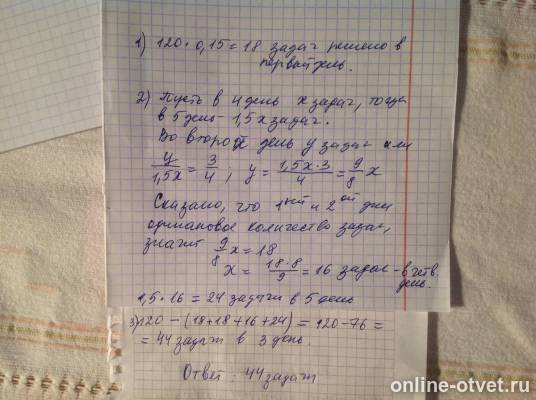 1) 120 · 0,15 = 18 задач решено в
первый день.
2) Пусть в 4 день x задач, тогда
в 5 день - 1,5x задач.
Во второй день y задач или
y/1,5x = 3/4, y = 1,5x·3/4 = 9/8 x
Сказано, что 1ый и 2ой дни
одинаковое количество задач,
значит 9/8 x = 18
x = 18·8/9 = 16 задач - в четв.
день.
1,5 · 16 = 24 задачи в 5 день
3) 120 - (18+18+16+24) = 120 - 76 =
= 44 задач в 3 день.
Ответ: 44 задач
online-otvet.ru